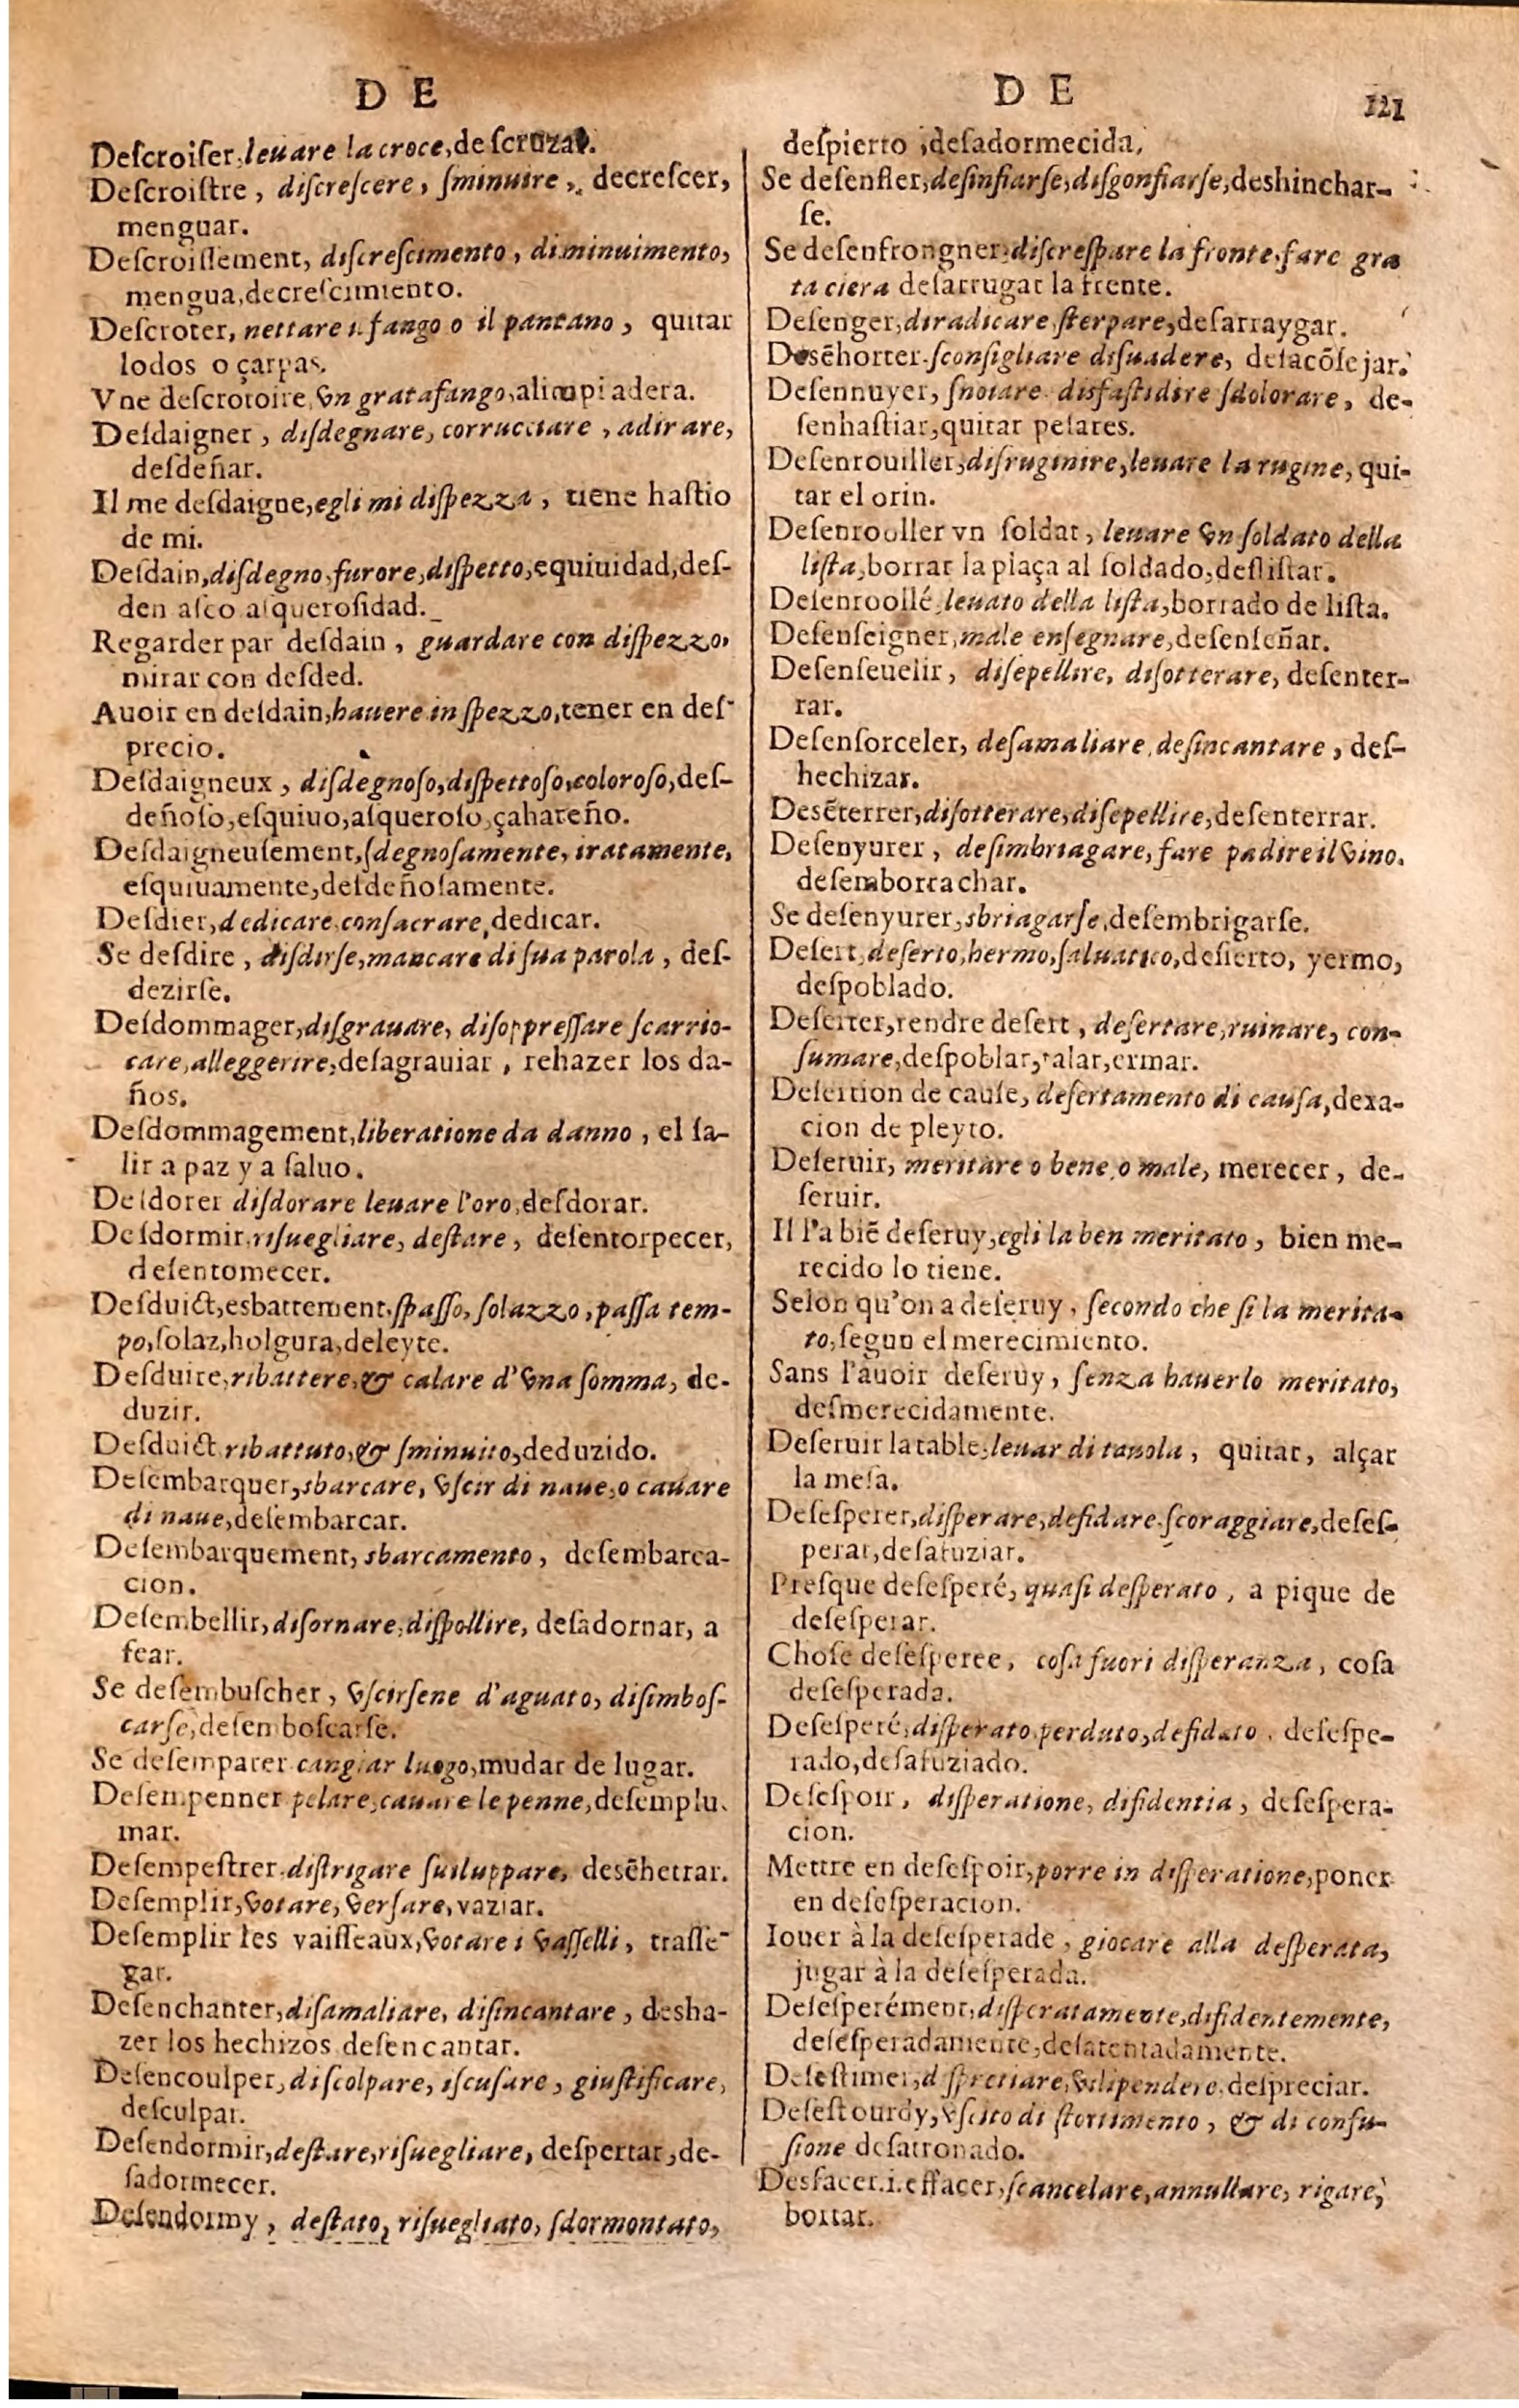 D E
Deſcroiſer, leuare la croce, deſcruzar.
Deſcroiſtre, diſcreſcere, ſminuire, decreſcer,
menguar.
Deſcroiſſement, diſcreſcimento, diminuimento,
mengua, decreſcimiento.
Deſcroter, nettare il fango o il pantano, quitar
lodos o çarpas.
Vne deſcrotoire, vn gratafango, alimpiadera.
Deſdaigner, diſdegnare, corrucciare, adirare,
deſdeñar.
Il me deſdaigne, egli mi diſpezza, tiene haſtio
de mi.
Deſdain, diſdegno, furore, diſpetto, equiuidad, deſ-
den aſco aſqueroſidad.
Regarder par deſdain, guardare con diſpezzo,
mirar con deſded.
Auoir en deſdain, hauere in ſpezzo, tener en deſ-
precio.
Deſdaigneux, diſdegnoſo, diſpettoſo, coloroſo, deſ-
deñoſo, eſquiuo, aſqueroſo, çahareño.
Deſdaigneuſement, ſdegnoſamente, iratamente,
eſquiuamente, deſdeñoſamente.
Deſdier, dedicare, conſacrare, dedicar.
Se deſdire, diſdirſe, mancare di ſua parola, deſ-
dezirſe.
Deſdommager, diſgrauare, diſoppreſſare ſcarrio-
care, alleggerire, deſagrauiar, rehazer los da-
ños.
Deſdommagement, liberatione da danno, el ſa-
lir a paz y a ſaluo.
Deſdorer diſdorare leuare l'oro, deſdorar.
Deſdormir, riſuegliare, deſtare, deſentorpecer,
deſentomecer.
Deſduict, esbattement, ſpaſſo, ſolazzo, paſſa tem-
po, ſolaz, holgura, deleyte.
Deſduire, ribattere, & calare d'vna ſomma, de-
duzir.
Deſduict ribattuto, & ſminuito, deduzido.
Deſembarquer, sbarcare, vſcir di naue, o cauare
di naue, deſembarcar.
Deſembarquement, sbarcamento, deſembarca-
cion.
Deſembellir, diſornare, diſpollire, deſadornar, a
fear.
Se deſembuſcher, vſcirſene d'aguato, diſimboſ-
carſe, deſemboſcarſe.
Se deſemparer cangiar luogo, mudar de lugar.
Deſempenner pelare, cauare le penne, deſemplu-
mar.
Deſempeſtrer, diſtrigare ſuiluppare, desēhetrar.
Deſemplir, votare, verſare, vaziar.
Deſemplir les vaiſſeaux, votare i vaſſelli, traſſe-
gar.
Deſenchanter, diſamaliare, diſincantare, desha-
zer los hechizos deſencantar.
Deſencoulper, diſcolpare, iſcuſare, giuſtificare,
deſculpar.
Deſendormir, deſtare, riſuegliare, deſpertar, de-
ſadormecer.
Deſendormy, deſtato, riſuegliato, ſdormontato,
D E
121
deſpierto, deſadormecida.
Se deſenfler, deſinfiarſe, diſgonfiarſe, deshinchar-
ſe.
Se deſenfrongner, diſcreſpare la fronte, fare gra
ta ciera deſarrugar la frente.
Deſenger, diradicare, ſterpare, deſarraygar.
Desēhorter, ſconſigliare diſuadere, deſacōſejar.
Deſennuyer, ſnoiare disfaſtidire ſdolorare, de-
ſenhaſtiar, quitar peſares.
Deſenrouiller, diſruginire, leuare la rugine, qui-
tar el orin.
Deſenrooller vn ſoldat, leuare vn ſoldato della
liſta, borrar la plaça al ſoldado, desliſtar.
Deſenroollé, leuato della liſta, borrado de liſta.
Deſenſeigner, male enſegnare, deſenſeñar.
Deſenſeuelir, diſepellire, diſotterare, deſenter-
rar.
Deſenſorceler, deſamaliare, deſincantare, deſ-
hechizar.
Desēterrer, diſotterare, diſepellire, deſenterrar.
Deſenyurer, deſimbriagare, fare padire il vino.
deſemborrachar.
Se deſenyurer, sbriagarſe, deſembrigarſe.
Deſert, deſerto, hermo, ſaluatico, deſierto, yermo,
deſpoblado.
Deſerter, rendre deſert, deſertare, ruinare, con-
ſumare, deſpoblar, talar, ermar.
Deſertion de cauſe, deſertamento di cauſa, dexa-
cion de pleyto.
Deſeruir, meritare o bene, o male, merecer, de-
ſeruir.
Il l'a biē deſeruy, egli la ben meritato, bien me-
recido lo tiene.
Selon qu'on a deſeruy, ſecondo che ſi la merita-
to, ſegun el merecimiento.
Sans l'auoir deſeruy, ſenza hauerlo meritato,
deſmerecidamente.
Deſeruir la table, leuar di tauola, quitar, alçar
la meſa.
Deſeſperer, diſperare, defidare, ſcoraggiare, deſeſ-
perar, deſafuziar.
Preſque deſeſperé, quaſi deſperato, a pique de
deſeſperar.
Choſe deſeſperee, coſa fuori diſperanza, coſa
deſeſperada.
Deſeſperé, diſperato, perduto, defidato, deſeſpe-
rado, deſafuziado.
Deſeſpoir, diſperatione, difidentia, deſeſpera-
cion.
Mettre en deſeſpoir, porre in diſperatione, poner
en deſeſperacion.
Iouer à la deſeſperade, giocare alla deſperata,
jugar à la deſeſperada.
Deſeſperément, diſperatamente, difidentemente,
deſeſperadamente, deſatentadamente.
Deſeſtimer, diſpretiare, vilipendere, deſpreciar.
Deſeſtourdy, vſcito di ſtortimento, & di confu-
ſione deſatronado.
Desfacer. i. effacer, ſcancelare, annullare, rigare,
borrar.